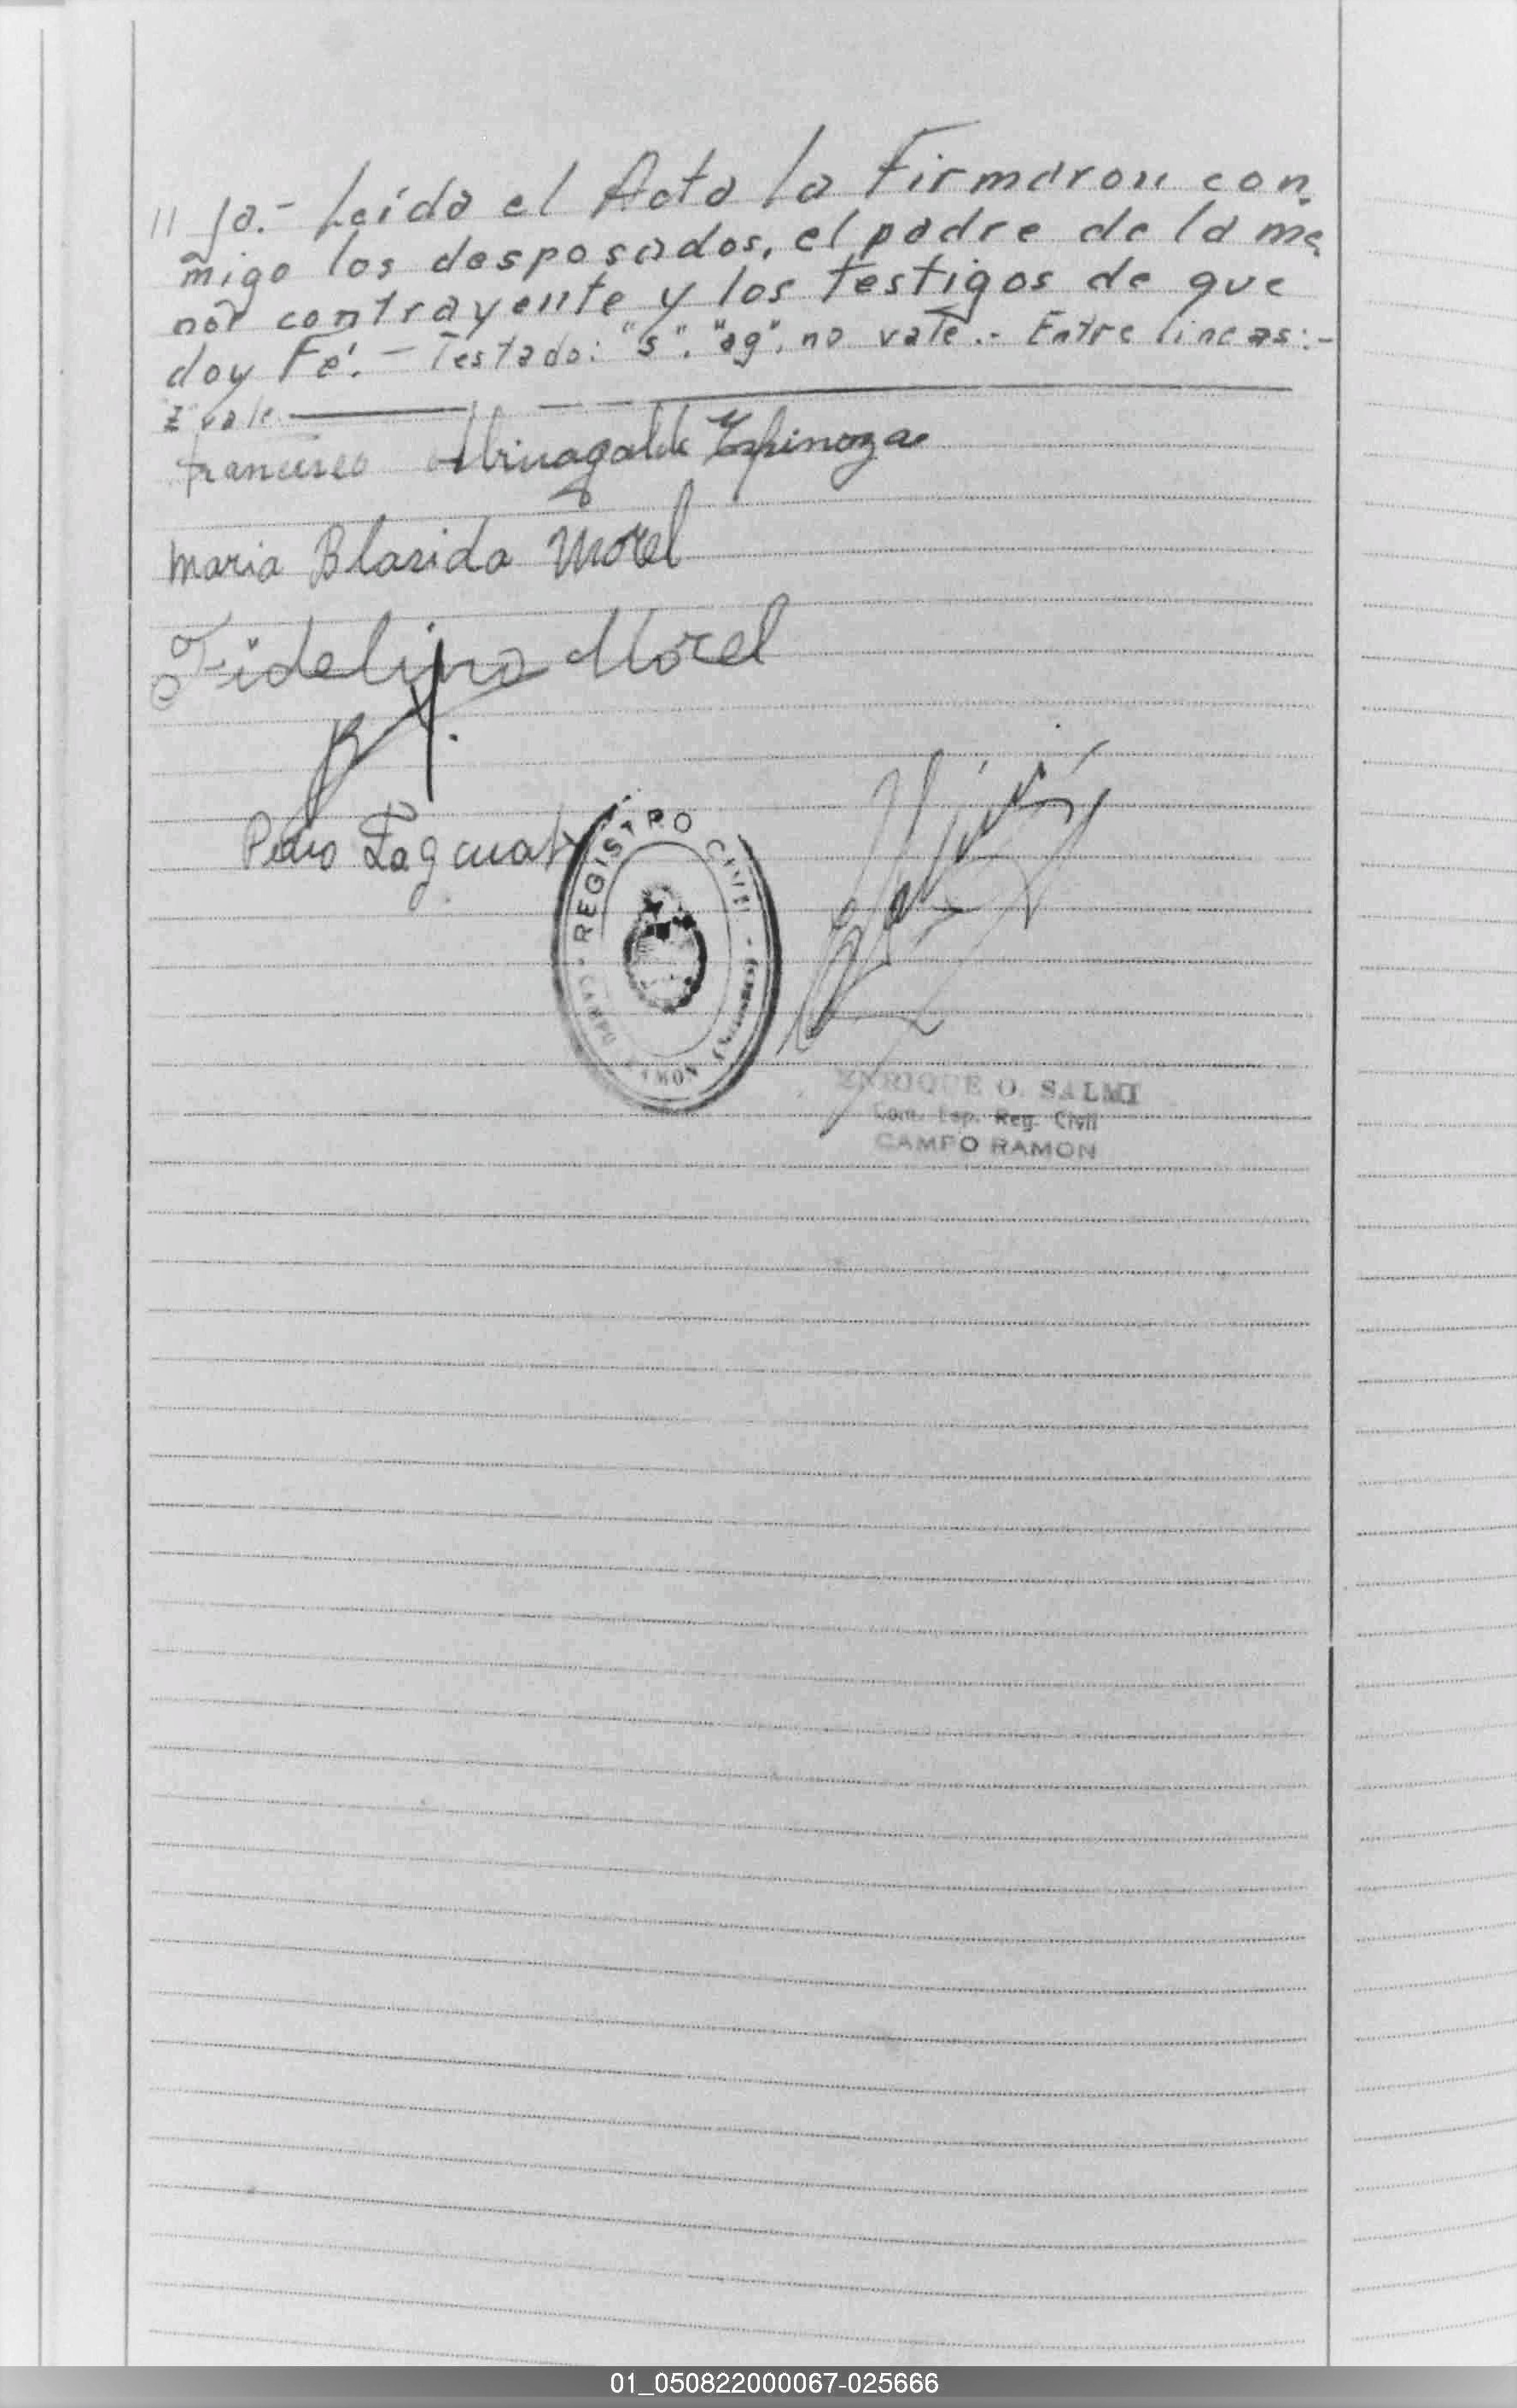 11 ja.- Leída el Acta la Firmaron con
migo los desposados, el padre de la me
nor contrayente y los testigos de que
doy Fé. - Testado: "s". "ag". no vale.- Entre lineas:-
"z" vale.
Francisco Espinoza
Maria Blasida Morel
Fidelino Morel
Pedro
REGISTRO CIVIL
CAMPO RAMON
ENRIQUE O. SALMI
Com. Esp. Reg. Civil
CAMPO RAMON
01_050822000067-025666